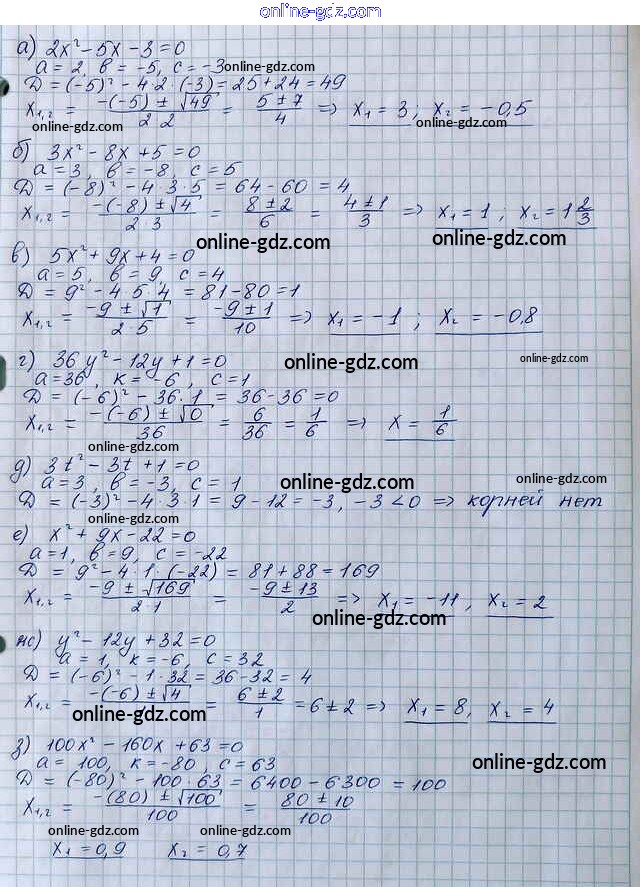 online-gdz.com
а) 2x² - 5x - 3 = 0
a = 2, b = -5, c = -3
online-gdz.com
D = (-5)² - 4·2·(-3) = 25 + 24 = 49
x₁,₂ = (-(-5) ± √49)/(2·2) = (5 ± 7)/4 ⇒ x₁ = 3; x₂ = -0,5
online-gdz.com online-gdz.com
б) 3x² - 8x + 5 = 0
a = 3, b = -8, c = 5
D = (-8)² - 4·3·5 = 64 - 60 = 4
x₁,₂ = (-(-8) ± √4)/(2·3) = (8 ± 2)/6 = (4 ± 1)/3 ⇒ x₁ = 1; x₂ = 1 2/3
online-gdz.com online-gdz.com
в) 5x² + 9x + 4 = 0
a = 5, b = 9, c = 4
D = 9² - 4·5·4 = 81 - 80 = 1
x₁,₂ = (-9 ± √1)/(2·5) = (-9 ± 1)/10 ⇒ x₁ = -1; x₂ = -0,8
г) 36y² - 12y + 1 = 0
online-gdz.com
a = 36, k = -6, c = 1
D = (-6)² - 36·1 = 36 - 36 = 0
x₁,₂ = (-(-6) ± √0)/36 = 6/36 = 1/6 ⇒ x = 1/6
online-gdz.com
д) 3t² - 3t + 1 = 0
a = 3, b = -3, c = 1
online-gdz.com online-gdz.com
D = (-3)² - 4·3·1 = 9 - 12 = -3, -3 < 0 ⇒ корней нет
online-gdz.com
е) x² + 9x - 22 = 0
a = 1, b = 9, c = -22
D = 9² - 4·1·(-22) = 81 + 88 = 169
x₁,₂ = (-9 ± √169)/(2·1) = (-9 ± 13)/2 ⇒ x₁ = -11, x₂ = 2
online-gdz.com
ж) y² - 12y + 32 = 0
a = 1, k = -6, c = 32
D = (-6)² - 1·32 = 36 - 32 = 4
x₁,₂ = (-(-6) ± √4)/1 = (6 ± 2)/1 = 6 ± 2 ⇒ x₁ = 8, x₂ = 4
online-gdz.com
з) 100x² - 160x + 63 = 0
a = 100, k = -80, c = 63
online-gdz.com
D = (-80)² - 100·63 = 6400 - 6300 = 100
x₁,₂ = (-(80) ± √100)/100 = (80 ± 10)/100
online-gdz.com online-gdz.com
x₁ = 0,9 x₂ = 0,7